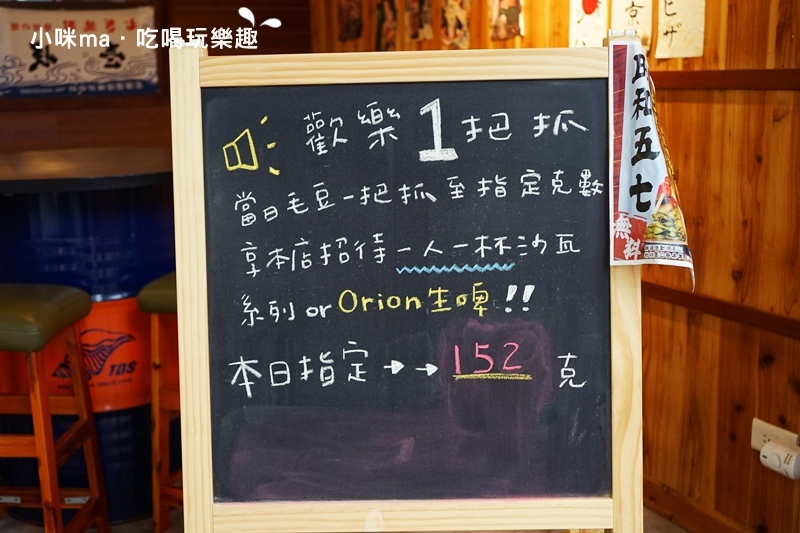 小咪ma · 吃喝玩樂趣
歡樂1把抓
當日毛豆一把抓至指定克數
享本店招待一人一杯沙瓦
系列 or Orion生啤!!
本日指定→→152克
昭和五七
無料
TDS
京
ヒザ